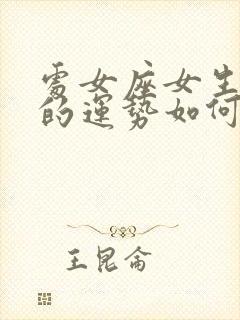 處女座女生
的運勢如何
王昆侖